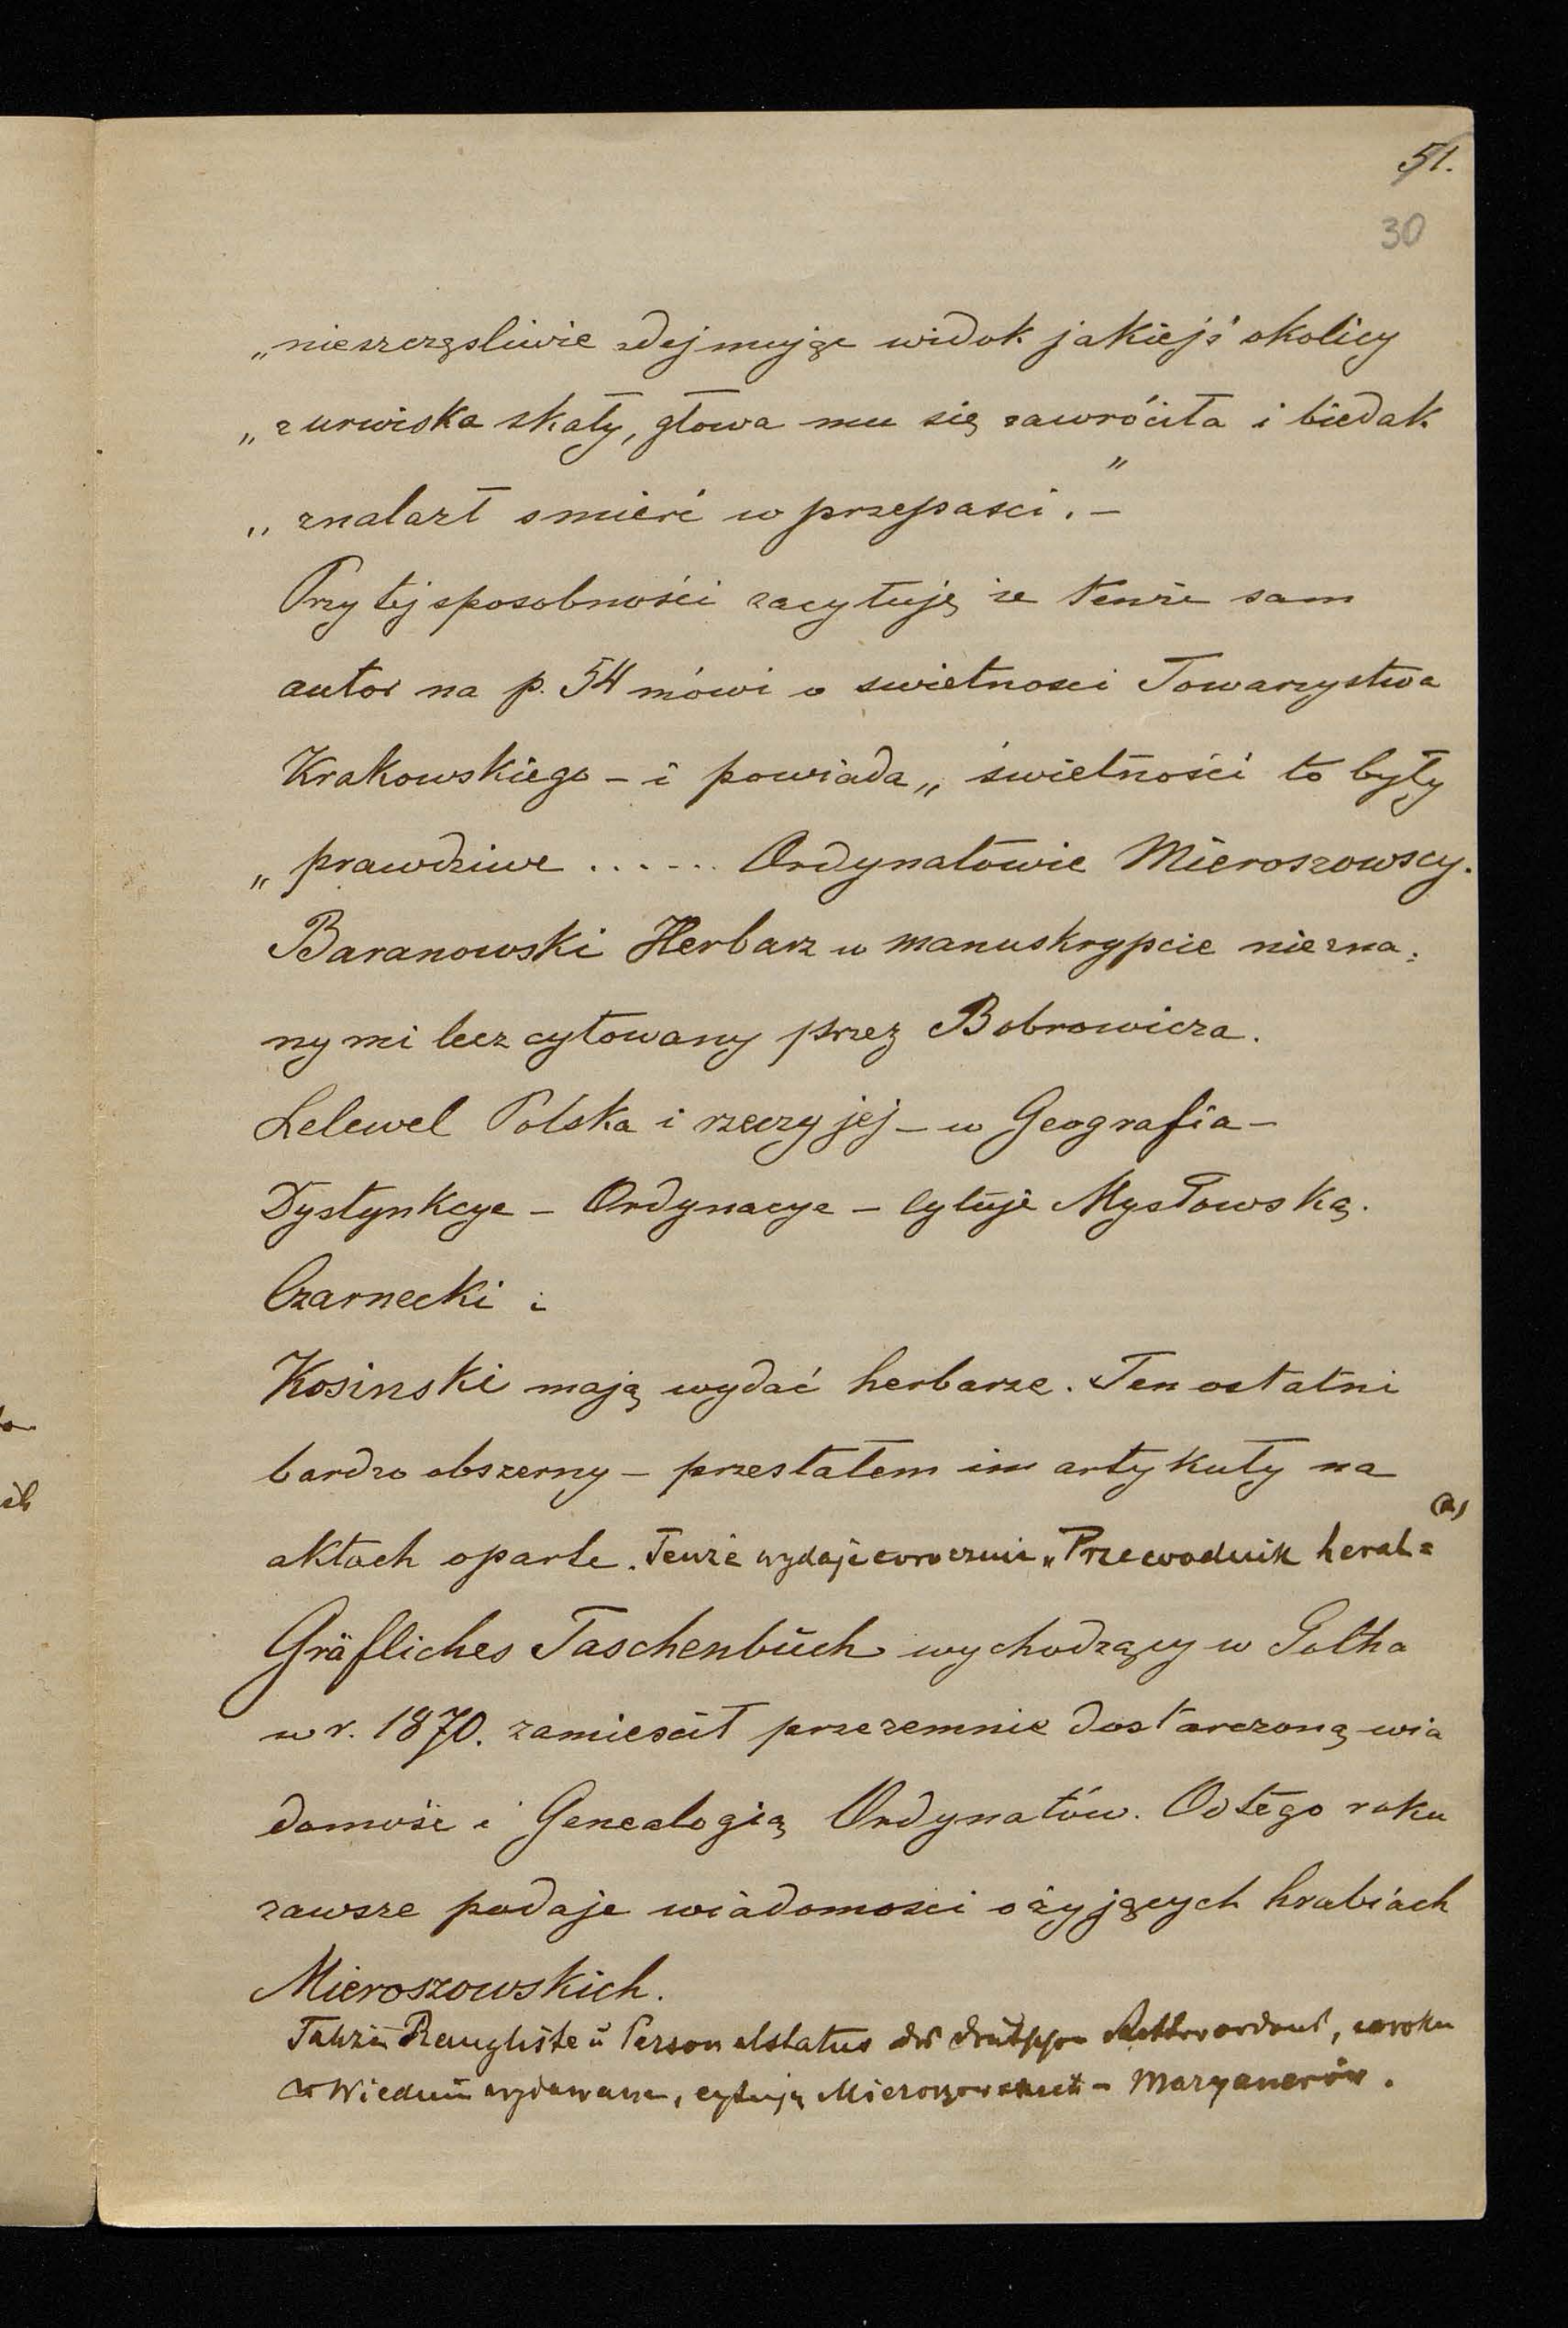 51.
30
„nieszczęsliwie zdejmując widok jakiejś okolicy
„z urwiska skały, głowa mu się zawróciła i biedak
„znalazł smierć w przepasci." –
Przy tej sposobności zacytuję że tenże sam
autor na p. 54 mówi o swietnosci Towarzystwa
Krakowskiego – i powiada „świetności to były
„prawdziwe ...... Ordynatowie Mieroszowscy.
Baranowski Herbarz w manuskrypcie niezna=
ny mi lecz cytowany przez Bobrowicza.
Lelewel Polska i rzeczy jej – w Geografia –
Dystynkcye – Ordynacye – Cytuje Mysłowską.
Czarnecki i
Kosinski mają wydać herbarze. Ten ostatni
bardzo obszerny – przesłałem im artykuły na
aktach oparte. Tenże wydaje corocznie „Przewodnik heral= (a)
Gräfliches Taschenbuch wychodzący w Gotha
w r. 1870. zamieścił przezemnie dostarczoną wia
domość i Genealogią Ordynatów. Od tego roku
zawsze podaje wiadomosci o żyjących hrabiach
Mieroszowskich.
Także Rangliste u Personalstatus des deutschen Ritterordens, co roku
w Wiedniu wydawane, cytują Mieroszowskich – Maryanerów.